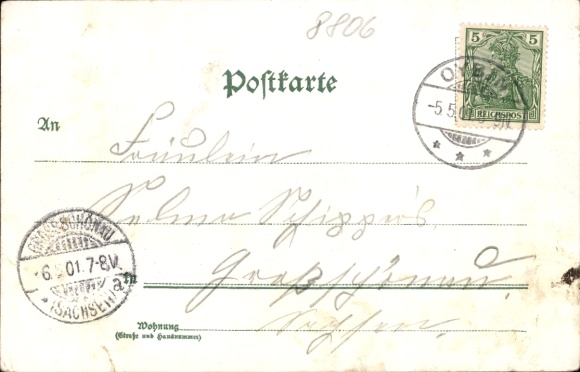 8806
5
REICHSPOST
OYBIN
-5.5.0
Postkarte
An
Fräulein
Selma Schippers,
GROSSSCHÖNAU
-6. 01.7-8V.
a
(SACHSEN)
in
Großschönau.
Sachsen.
Wohnung
(Straße und Hausnummer)